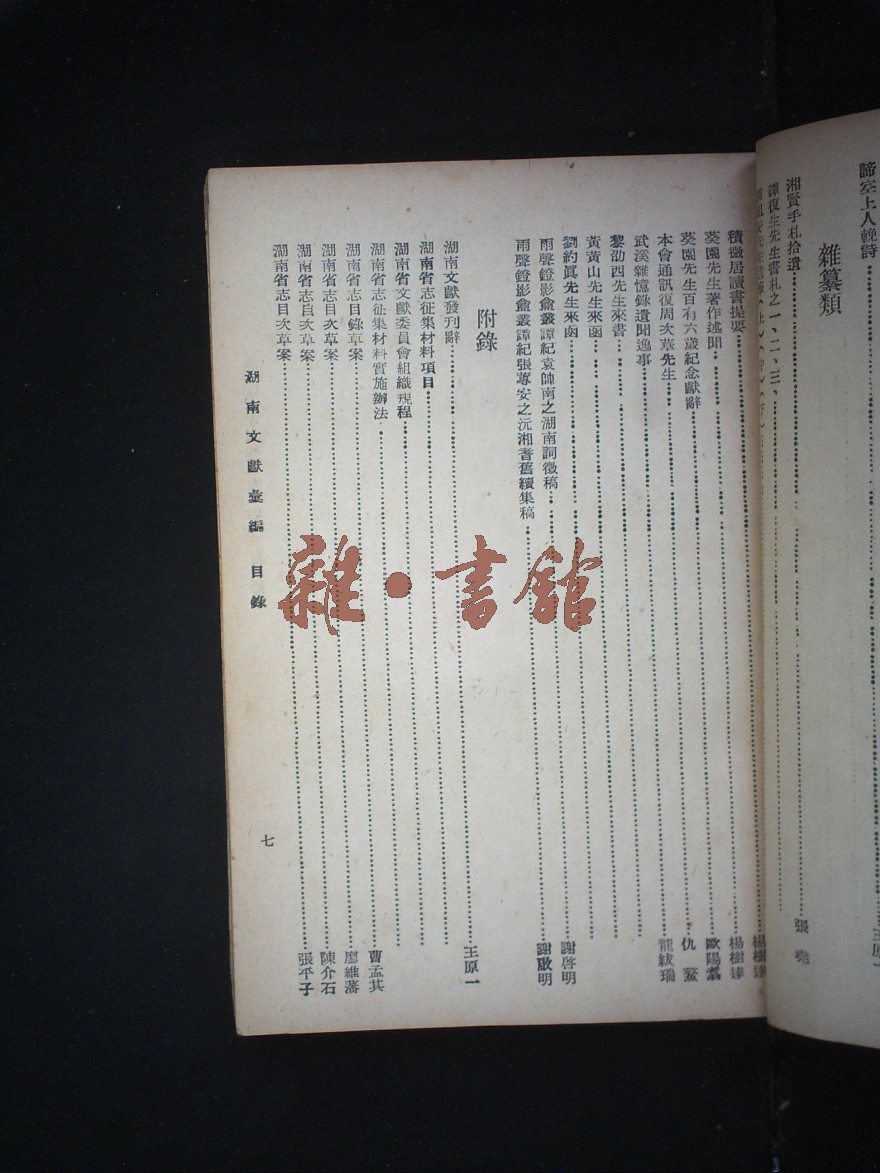 諦空上人輓詩……王原一
雜纂類
湘賢手札拾遺……張
譚復生先生書札之一、二、三、
積微居讀書提要……楊樹達
葵園先生著作述聞……歐陽
葵園先生百有六歲紀念獻辭……仇鰲
本會通訊復周次華先生……龍紱瑞
武溪雜憶錄遺聞逸事
黎劭西先生來書
黃黃山先生來函
劉約真先生來函
雨聲鐙影龕叢譚紀袁帥南之湖南詞徵稿……謝啓明
雨聲鐙影龕叢譚紀張蓴安之沅湘耆舊續集稿……謝啟明
附錄
湖南文獻發刊辭……王原一
湖南省志征集材料項目
湖南省文獻委員會組織規程
湖南省志征集材料實施辦法
湖南省志目錄草案……曹孟其
湖南省志目次草案……廖維藩
湖南省志目次草案……陳介石
湖南省志目次草案……張平子
湖南文獻彙編 目錄
七
雜·書館